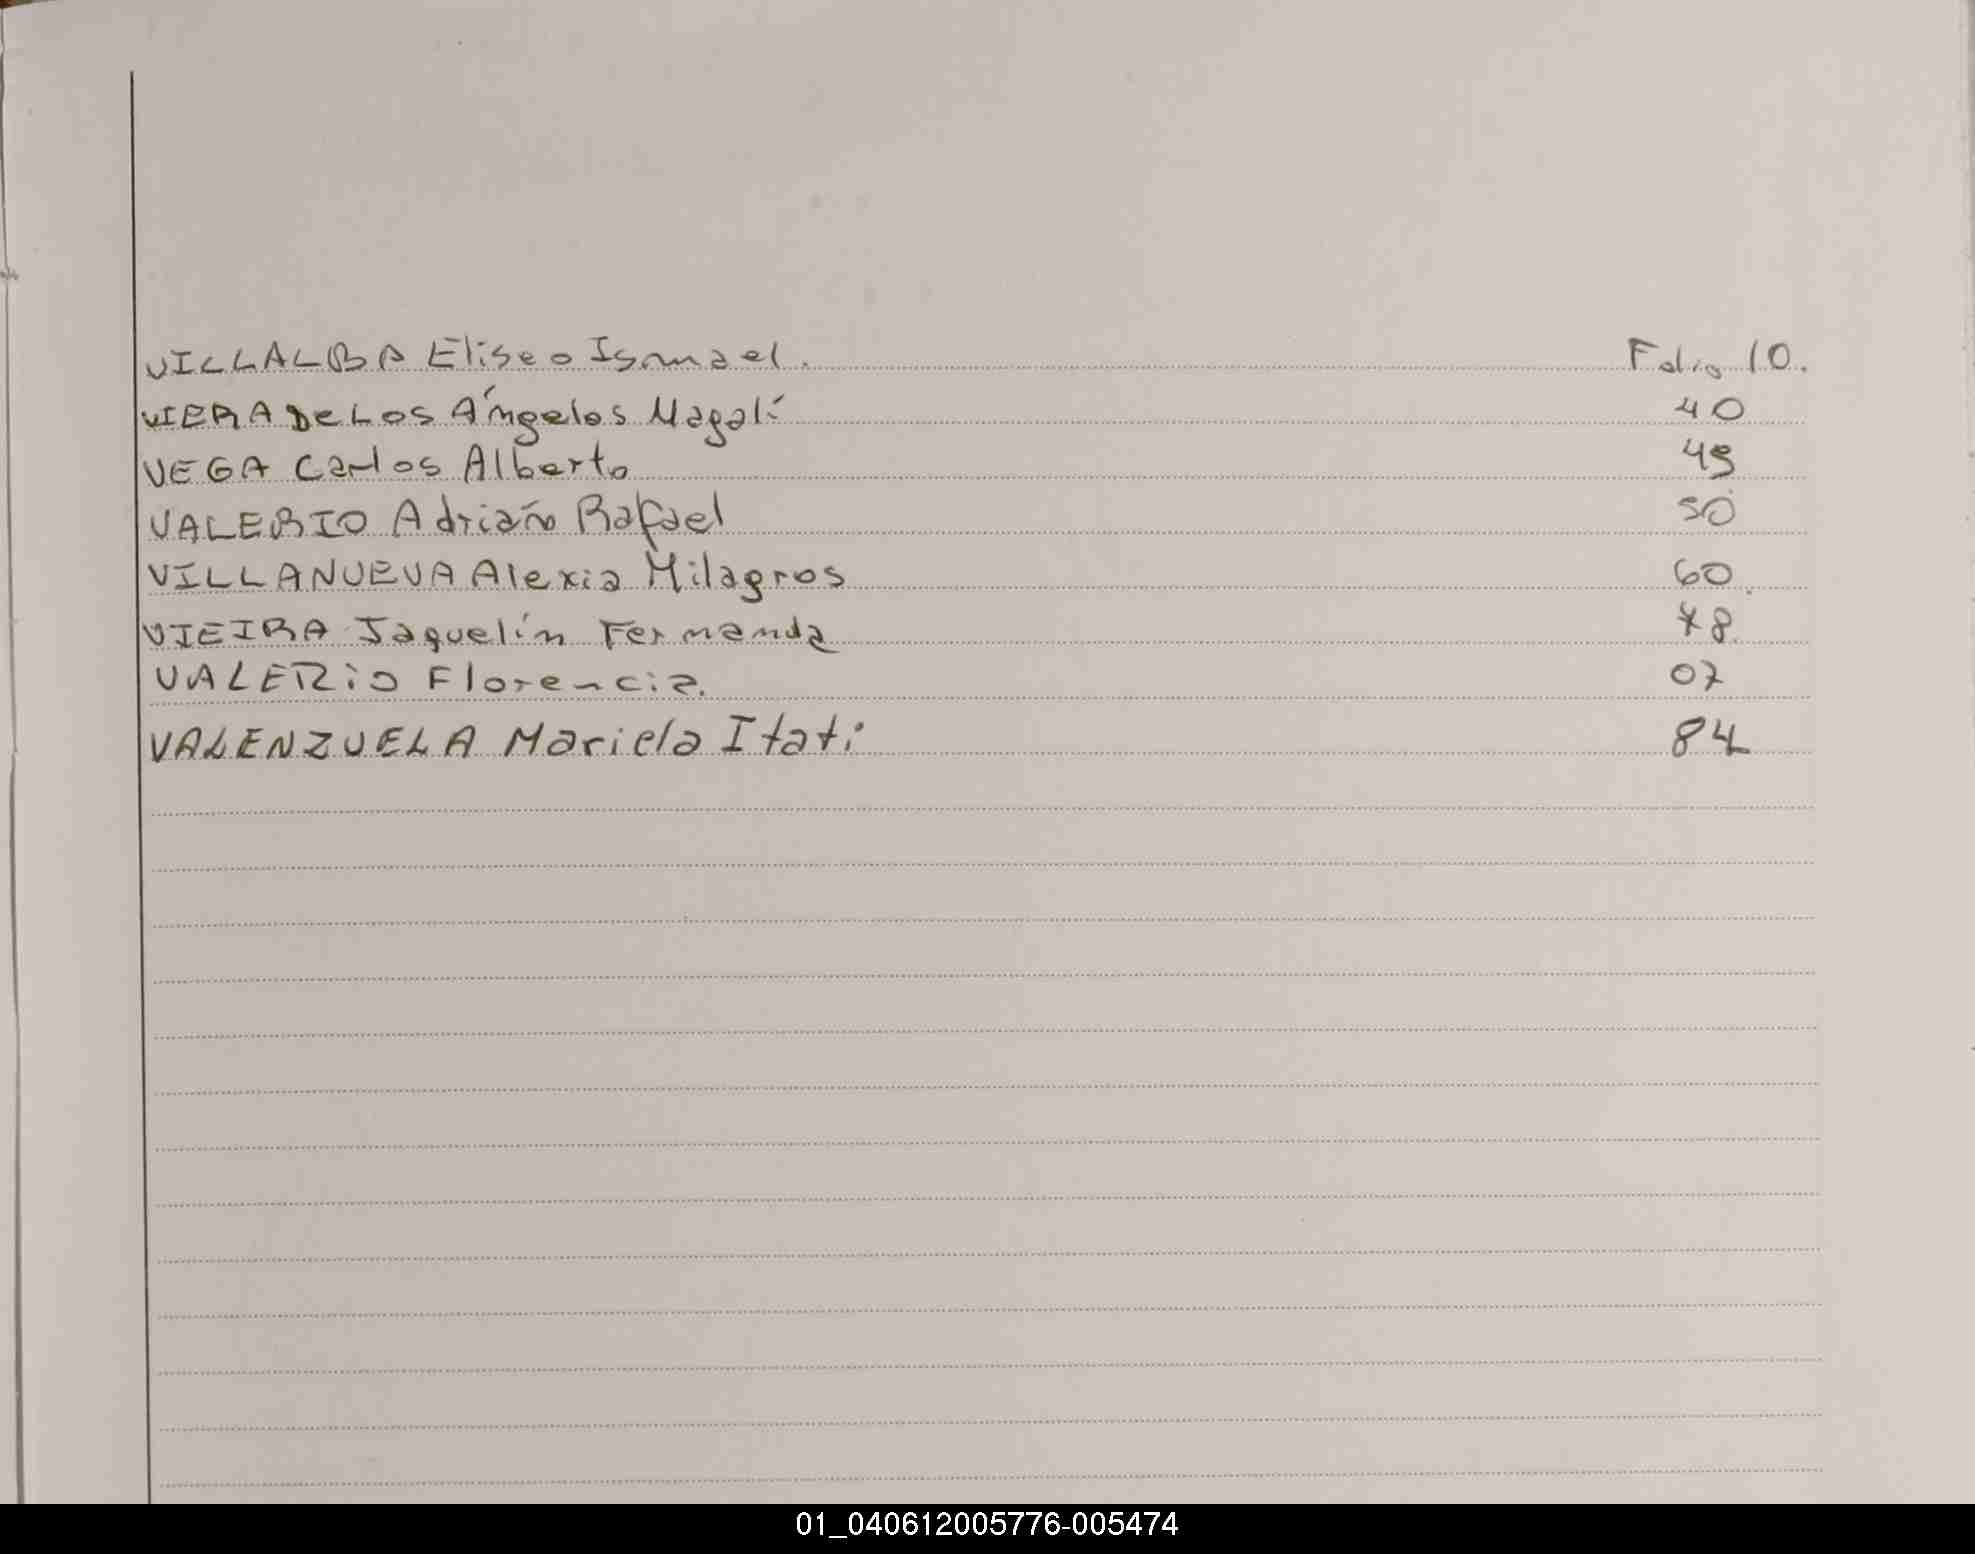 VILLALBA Eliseo Ismael. Folio 10.
VIERA De Los Ángelos Magalí 40
VEGA Carlos Alberto 49
VALERIO Adriaño Rafael 50
VILLANUEVA Alexia Milagros 60
VIEIRA Jaquelín Fernanda 78
VALERiO Florencia. 07
VALENZUELA Mariela Itati 84
01_040612005776-005474